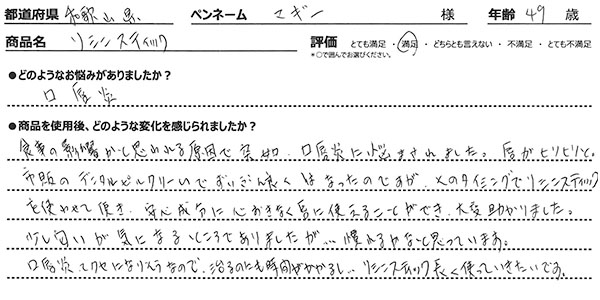 都道府県 和歌山県 ペンネーム マギー 様 年齢 49 歳
商品名 リシンスティック 評価 とても満足 ・ 満足 ・ どちらとも言えない ・ 不満足 ・ とても不満足
*○で囲んでお選びください。
●どのようなお悩みがありましたか?
口唇炎
●商品を使用後、どのような変化を感じられましたか?
食事の影響かと思われる原因で突如、口唇炎に悩まされました。唇がヒリヒリと。
市販のデンタルピルクリームでずいぶん良くはなったのですが、そのタイミングでリシンスティック
を使わせて頂き、安心成分に心おきなく唇に使えることができ、大変助かりました。
少し匂いが気になるところでありましたが… 慣れるかなと思っています。
口唇炎てクセになりそうなので、治るのにも時間がかかるし… リシンスティック長く使っていきたいです。